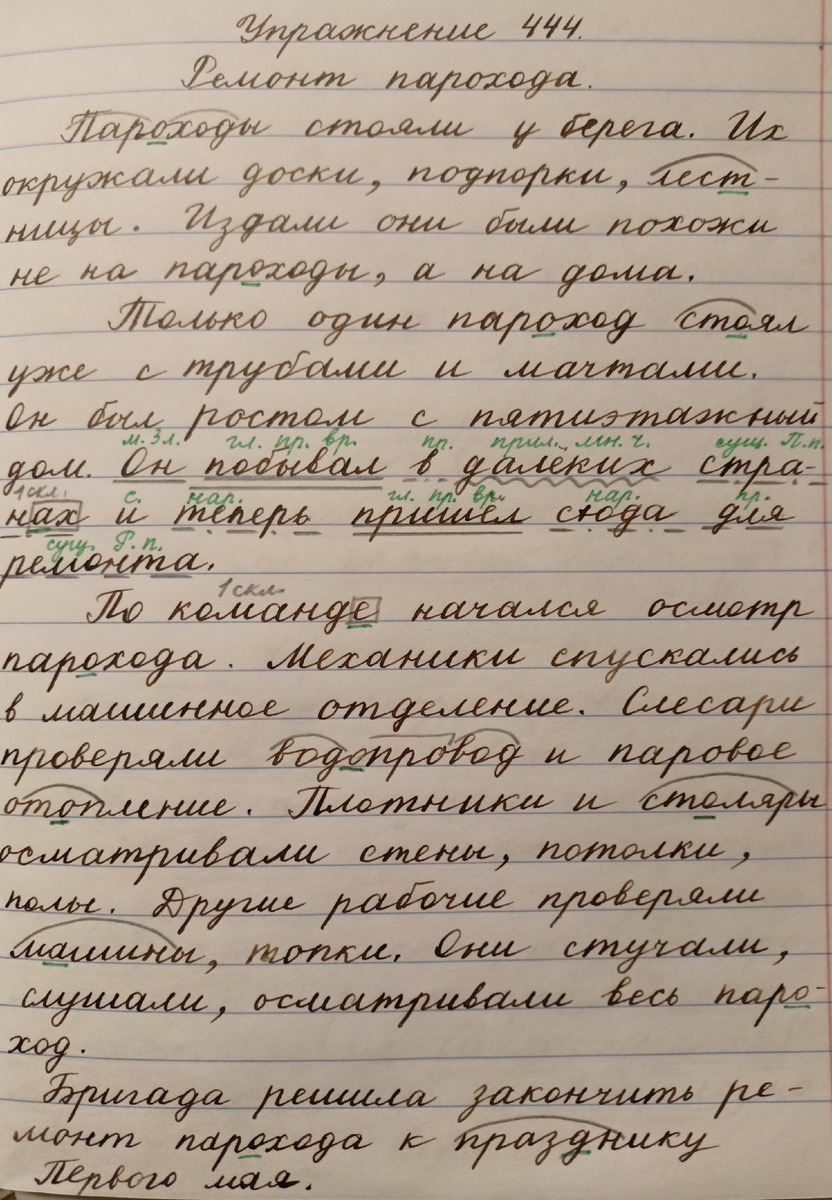 Упражнение 444.
Ремонт парохода.
Пароходы стояли у берега. Их
окружали доски, подпорки, лест-
ницы. Издали они были похожи
не на пароходы, а на дома.
Только один пароход стоял
уже с трубами и мачтами.
Он был ростом с пятиэтажный
м. 3л. гл. пр. вр. пр. прил. мн. ч. сущ. П.п.
дом. Он побывал в далёких стра-
1 скл. с. нар. гл. пр. вр. нар. пр.
нах и теперь пришёл сюда для
сущ. Р. п.
ремонта.
1 скл.
По команде начался осмотр
парохода. Механики спускались
в машинное отделение. Слесари
проверяли водопровод и паровое
отопление. Плотники и столяры
осматривали стены, потолки,
полы. Другие рабочие проверяли
машины, топки. Они стучали,
слушали, осматривали весь паро-
ход.
Бригада решила закончить ре-
монт парохода к празднику
Первого мая.